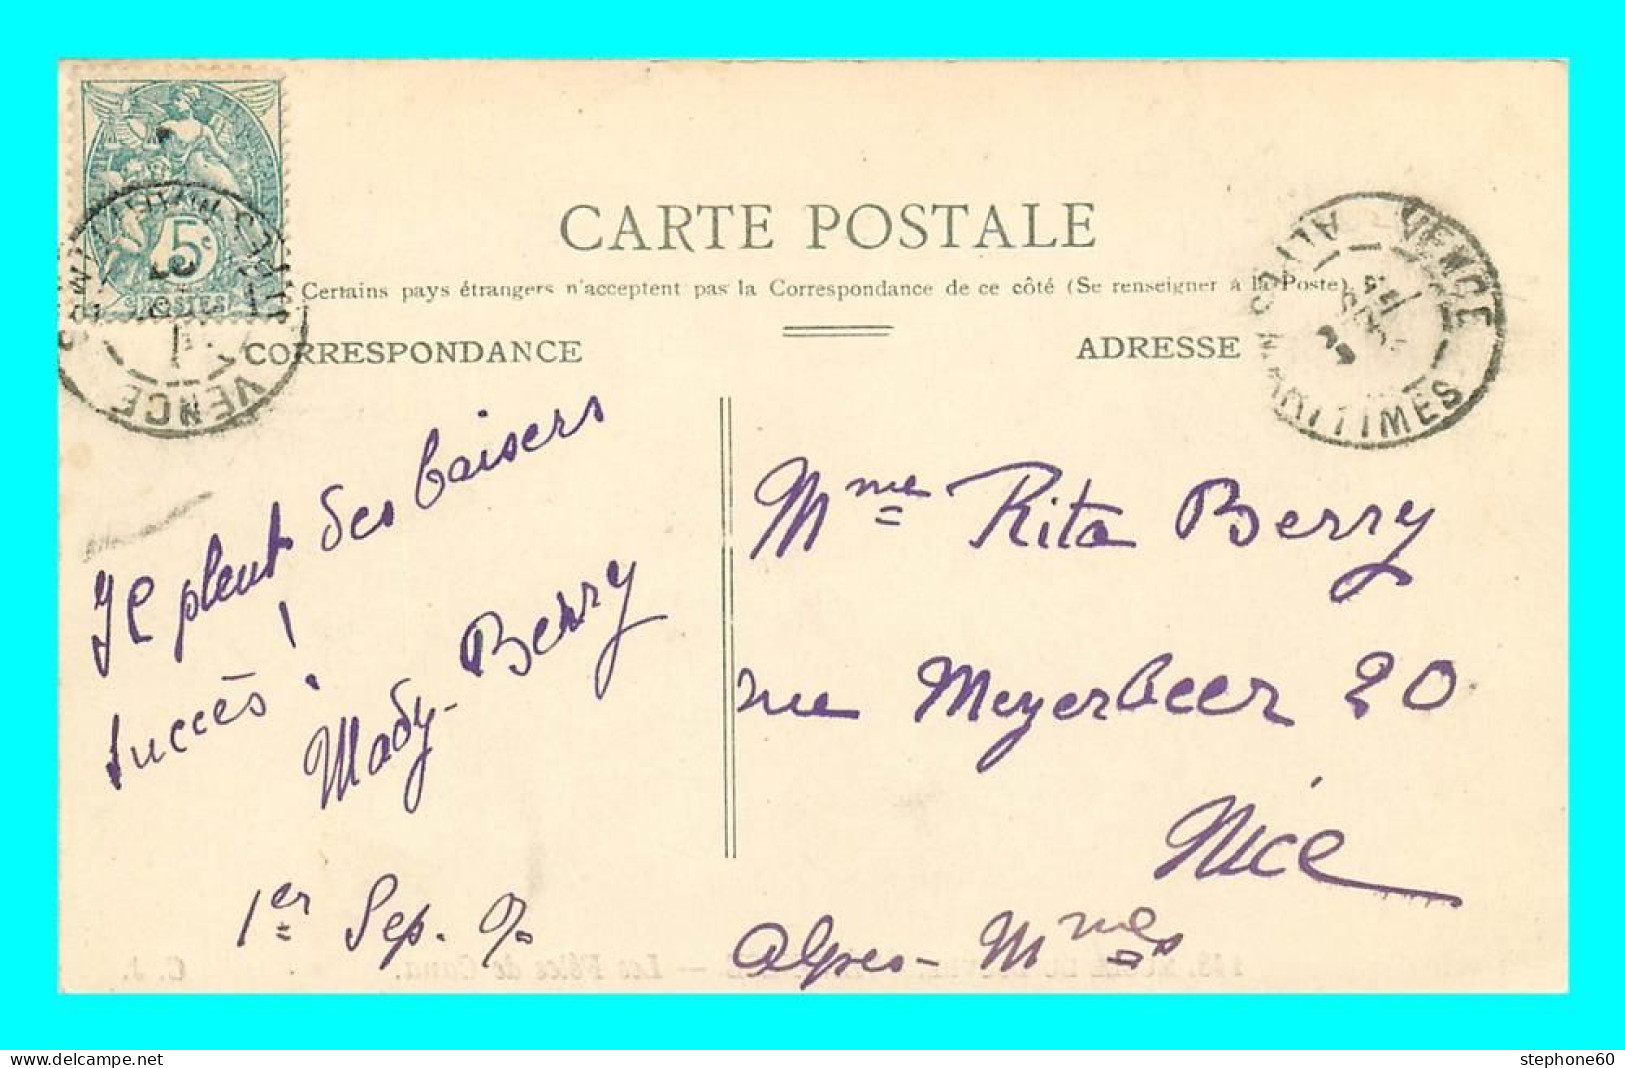 CARTE POSTALE
Certains pays étrangers n'acceptent pas la Correspondance de ce côté (Se renseigner à la Poste)
CORRESPONDANCE
ADRESSE
5c
POSTES
VENCE
VENCE
ALPES MARITIMES
Il pleut des baisers
succès !
Mady-Berry
1er Sep.
Mme Rita Berry
rue Meyerbeer 20
Nice
Alpes-Mmes
Les Fêtes de Cana.
C. J.
stephone60